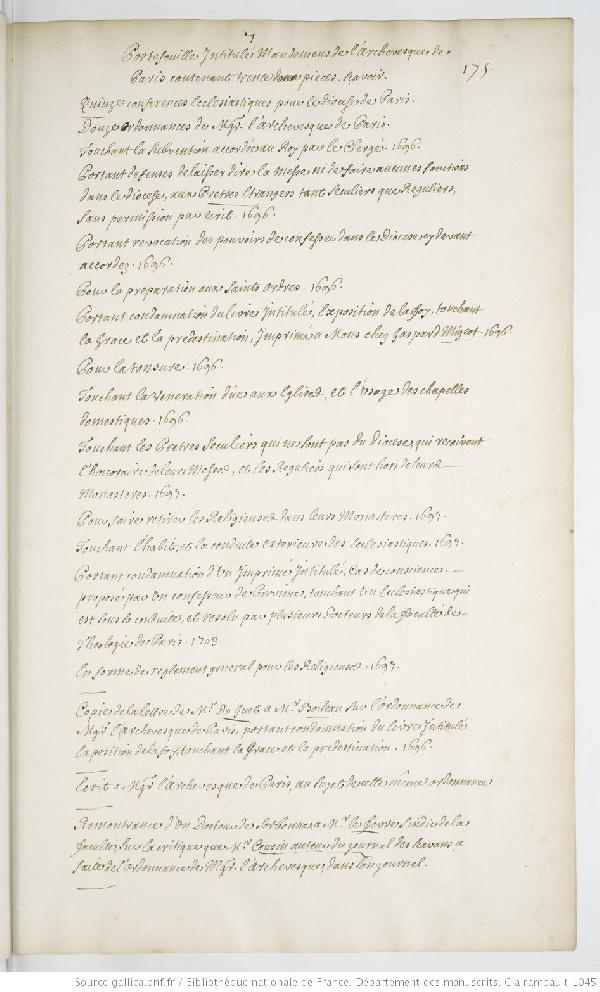 7
Portefeuille Intitulé Mandemens de l'archevesque de
Paris contenant trente pieces, scavoir.
175.
Quinze conferences Ecclesiastiques pour le diocese de Paris.
Douze ordonnances de Mgr. l'archevesque de Paris.
Touchant la subvention accordée au Roy par le Clergé. 1696.
Portant defenses de laisser dire la Messe ni de faire aucunes fonctions
dans le diocese, aux Prestres Etrangers tant seculiers que Reguliers,
sans permission par écrit. 1696.
Portant revocation des pouvoirs de confesser dans le diocese cy devant
accordez. 1696.
Pour la preparation aux Saints ordres. 1696.
Portant condamnation du livre Intitulé, Exposition de la foy, touchant
la Grace et la predestination, Imprimé a Mons chez Gaspard Migeot. 1696
Pour la tonsure. 1696.
Touchant la veneration dûe aux Eglises, et l'usage des chapelles
domestiques. 1696.
Touchant les Prestres seculiers qui ne sont pas du diocese, qui reçoivent
l'honoraire de leurs Messes, et les Reguliers qui sont hors de leurs
Monasteres. 1697.
Pour faire retirer les Religieuses dans leurs Monasteres. 1697.
Touchant l'habit, et la conduite exterieure des Ecclesiastiques. 1697.
Portant condamnation d'Un Imprimé Intitulé, Cas de conscience
proposé par Un confesseur de Province, touchant Un Ecclesiastique qui
est sous sa conduite, et resolu par plusieurs Docteurs de la faculté de
Theologie de Paris. 1703.
En forme de reglement general pour les Religieuses. 1697.
Copie de la lettre de Mr. Du Guet a Mr. Boileau sur l'ordonnance de
Mgr. l'archevesque de Paris, portant condamnation du livre Intitulé
Exposition de la foy touchant la Grace et la predestination. 1696.
Ecrit a Mgr. l'archevesque de Paris, au sujet de cette même ordonnance
Remontrance d'Un Docteur de Sorbonne, a Mr. le fevre sindic de la
faculté, sur la critique que Mr. Cousin auteur du journal des scavans, a
faite de l'ordonnance de Mgr. l'Archevesque, dans son journal.
Source gallica.bnf.fr / Bibliothèque nationale de France. Département des manuscrits. Clairambault 1045